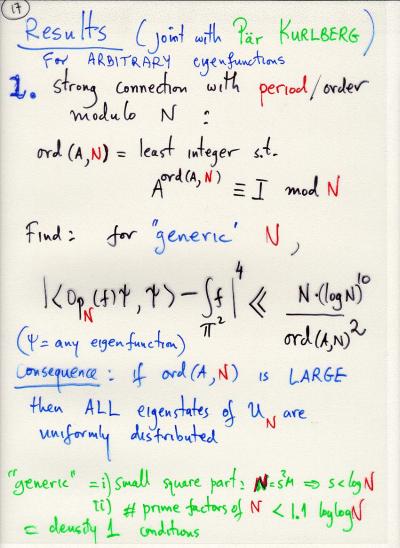 17
Results (joint with Pär KURLBERG)
FOR ARBITRARY eigenfunctions
1. strong connection with period/order
modulo N :
ord (A, N) = least integer s.t.
A^ord(A, N) ≡ I mod N
Find: for "generic" N,
|< Op_N (f) Ψ, Ψ > - ∫_𝕋² f |^4 ≪ N·(log N)^10 / ord(A, N)^2
(Ψ = any eigenfunction)
Consequence: if ord(A, N) is LARGE
then ALL eigenstates of U_N are
uniformly distributed
"generic" = i) small square part: N = s²M ⇒ s < log N
ii) # prime factors of N < 1.1 loglog N
= density 1 conditions